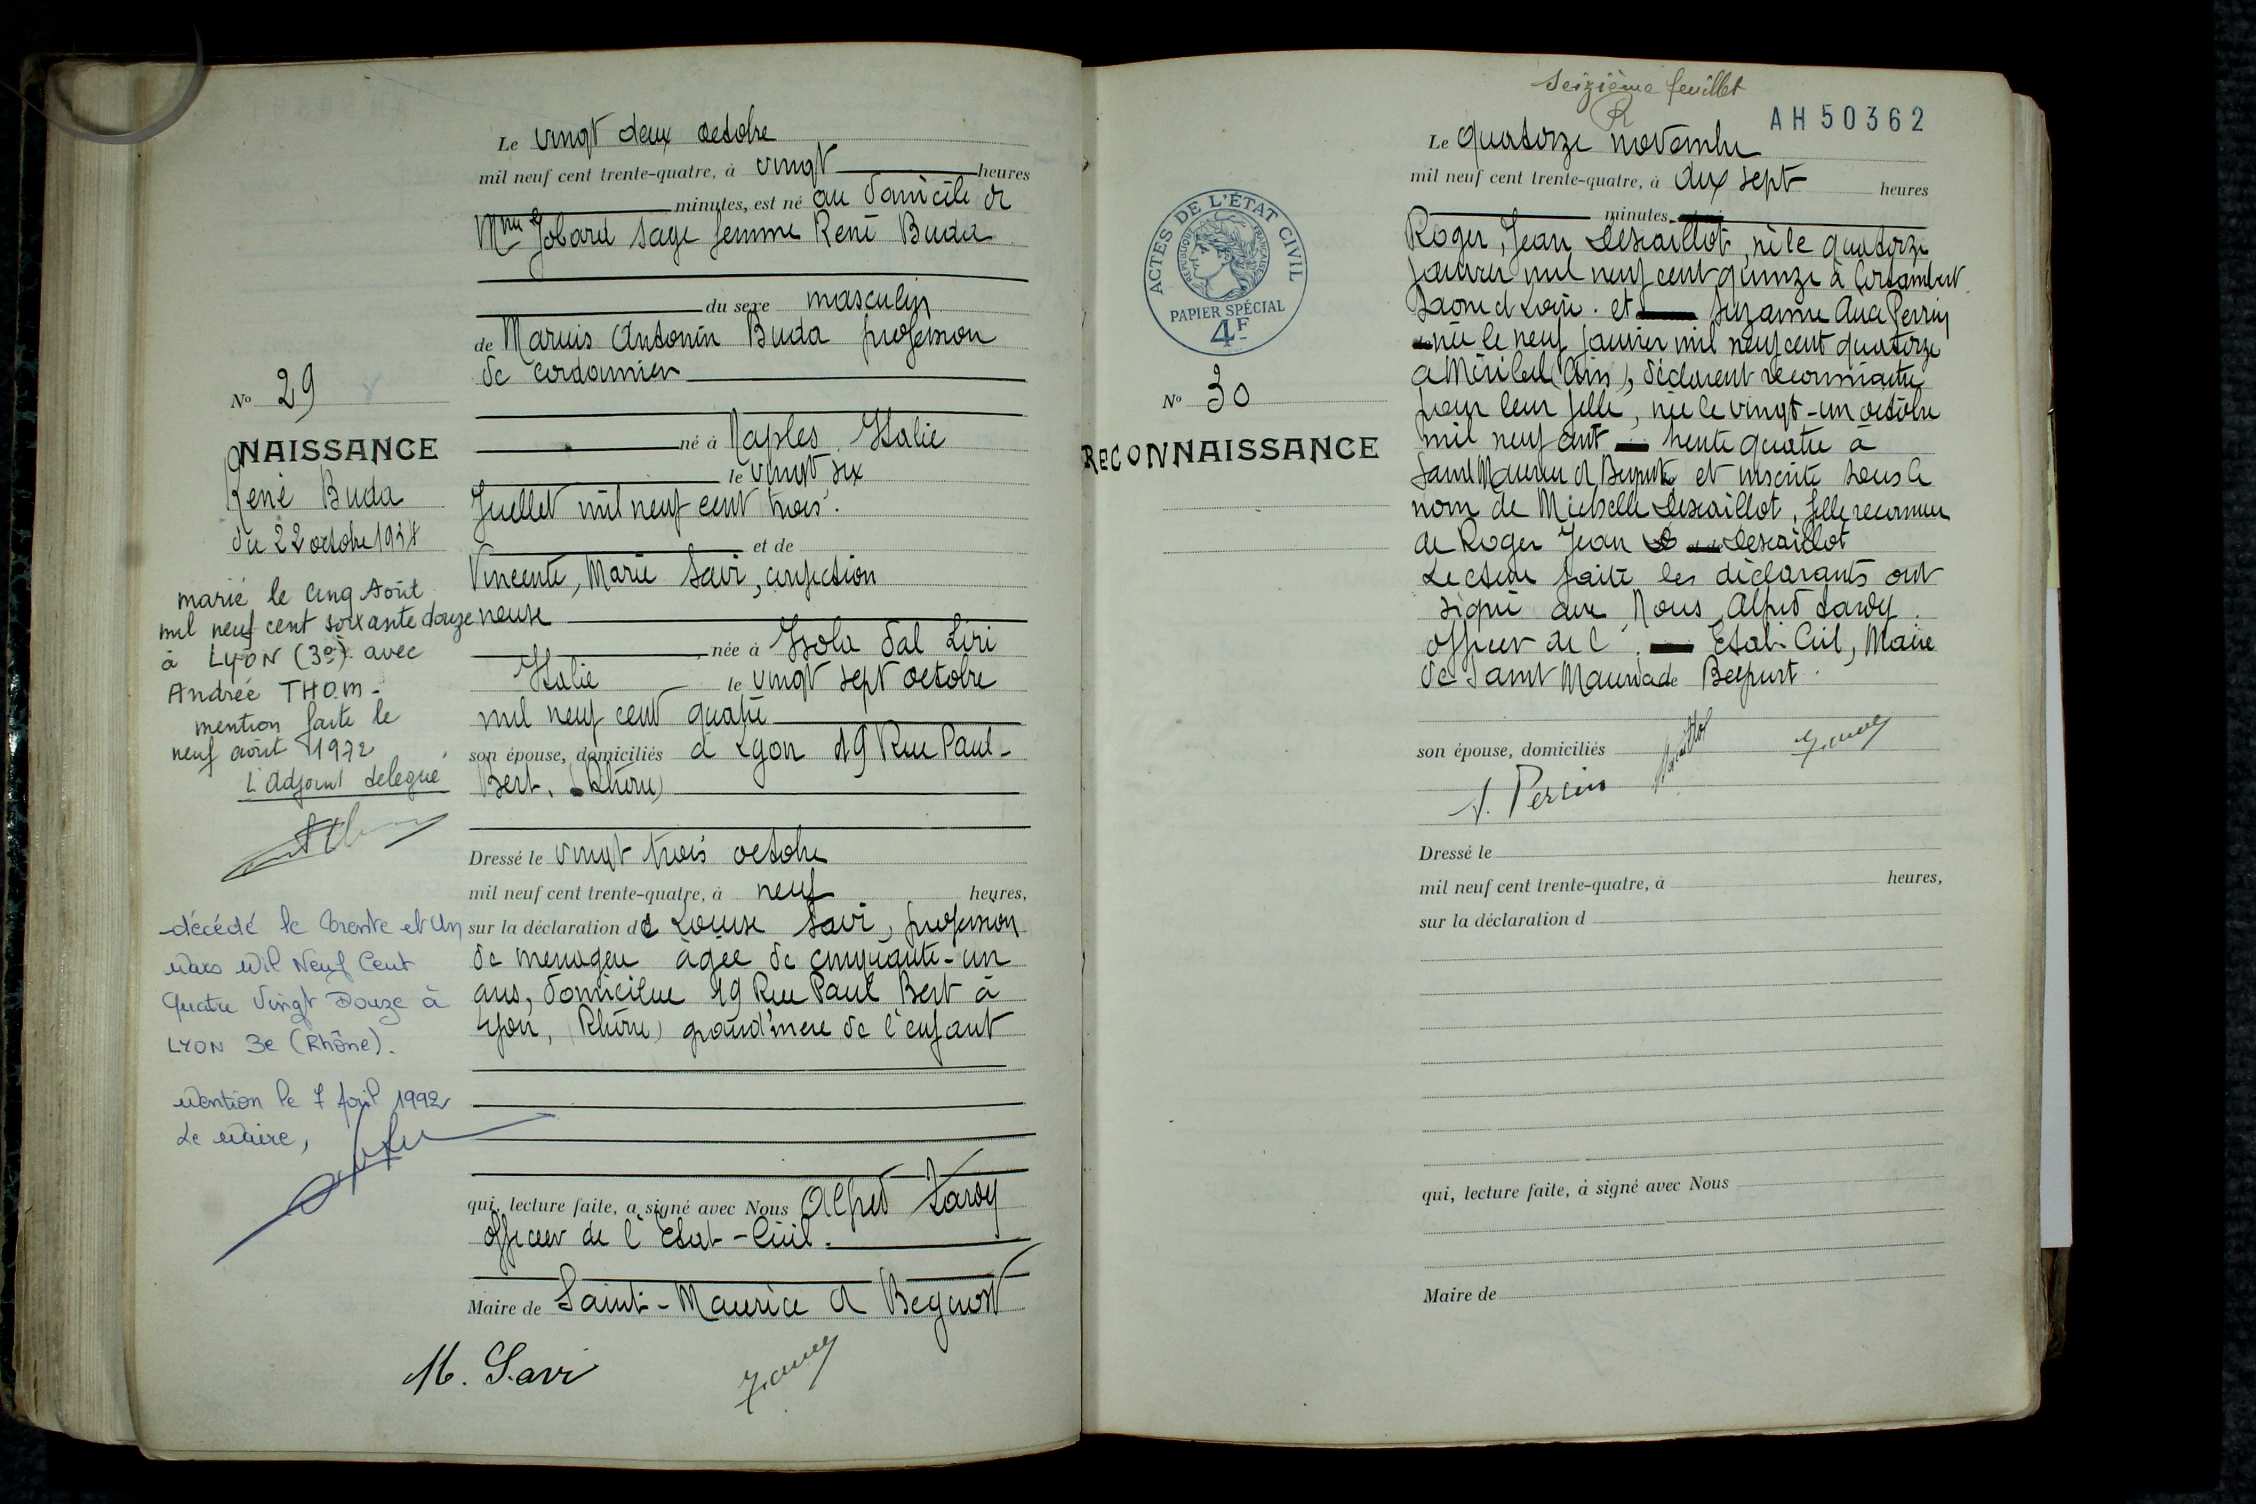 Le vingt deux octobre
mil neuf cent trente-quatre, à vingt heures
minutes, est né au domicile de
Mme Jobard sage femme René Buda
du sexe masculin
de Marius Antonin Buda profession
de cordonnier
né à Naples Italie
le vingt six
Juillet mil neuf cent trois.
et de
Vincente, Marie Savi, confection
neuse
née à Isola dal Liri
Italie le vingt sept octobre
mil neuf cent quatre
son épouse, domiciliés à Lyon 19 Rue Paul-
Bert, (Rhône)
Dressé le vingt trois octobre
mil neuf cent trente-quatre, à neuf heures,
sur la déclaration de Louise Savi, profession
de menagère agée de cinquante-un
ans, domiciliée 19 Rue Paul Bert à
Lyon, (Rhône) grand'mere de l'enfant
qui, lecture faite, a signé avec Nous Alfred Lardy
officier de l'Etat-Civil.
Maire de Saint-Maurice de Beynost
M. Savi
No 29
NAISSANCE
René Buda
du 22 octobre 1934
marié le cinq Août
mil neuf cent soixante douze
à LYON (3e) avec
Andrée THOM
mention faite le
neuf août 1972
L'Adjoint delegué
décédé le trente et Un
Mars Mil Neuf Cent
Quatre Vingt Douze à
LYON 3e (Rhône).
Mention le 7 Avril 1992
Le Maire,
seizième feuillet
AH 50362
Le quatorze novembre
mil neuf cent trente-quatre, à dix sept heures
minutes
Roger, Jean Descaillot, né le quatorze
janvier mil neuf cent quinze à Cortambert
Saone et Loire. et Suzanne Perrin
née le neuf janvier mil neuf cent quatorze
a Miribel (Ain), déclarent reconnaitre
pour leur fille, née le vingt-un octobre
mil neuf cent trente quatre à
Saint Maurice de Beynost et inscrite sous le
nom de Michelle Descaillot, fille reconnue
de Roger Jean Descaillot
Lecture faite les déclarants ont
signé avec Nous Alfred Lardy
officier de l' Etat-Civil, Maire
de Saint Maurice de Beynost.
son épouse, domiciliés
S. Perrin
Dressé le
mil neuf cent trente-quatre, à heures,
sur la déclaration d
qui, lecture faite, à signé avec Nous
Maire de
ACTES DE L'ÉTAT CIVIL
RÉPUBLIQUE FRANÇAISE
PAPIER SPÉCIAL
4F
No 30
RECONNAISSANCE